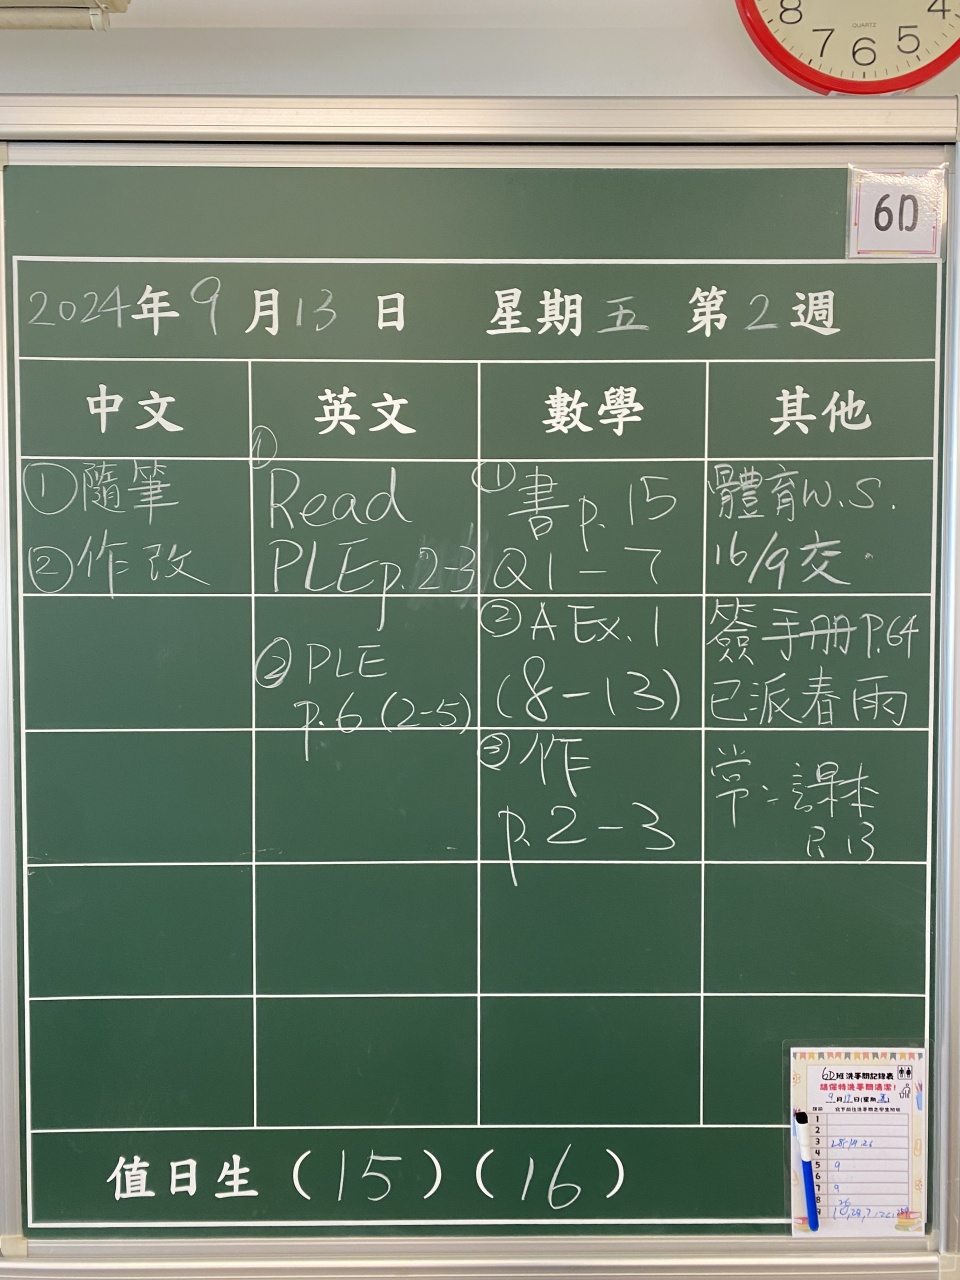 8 7 6 5 4
QUARTZ
6D
2024年9月13日 星期五 第2週
中文 英文 數學 其他
①隨筆
②作改
①
Read
PLE p.2-3
②PLE
p.6 (2-5)
①書p.15
Q1-7
②A Ex.1
(8-13)
③作
p.2-3
體育W.S.
16/9交
簽手册P.64
已派春雨
常:課本
P.13
值日生(15)(16)
6D班洗手間記錄表
請保持洗手間清潔!
1
2
3
4
5 9
6
7 9
8 26
9